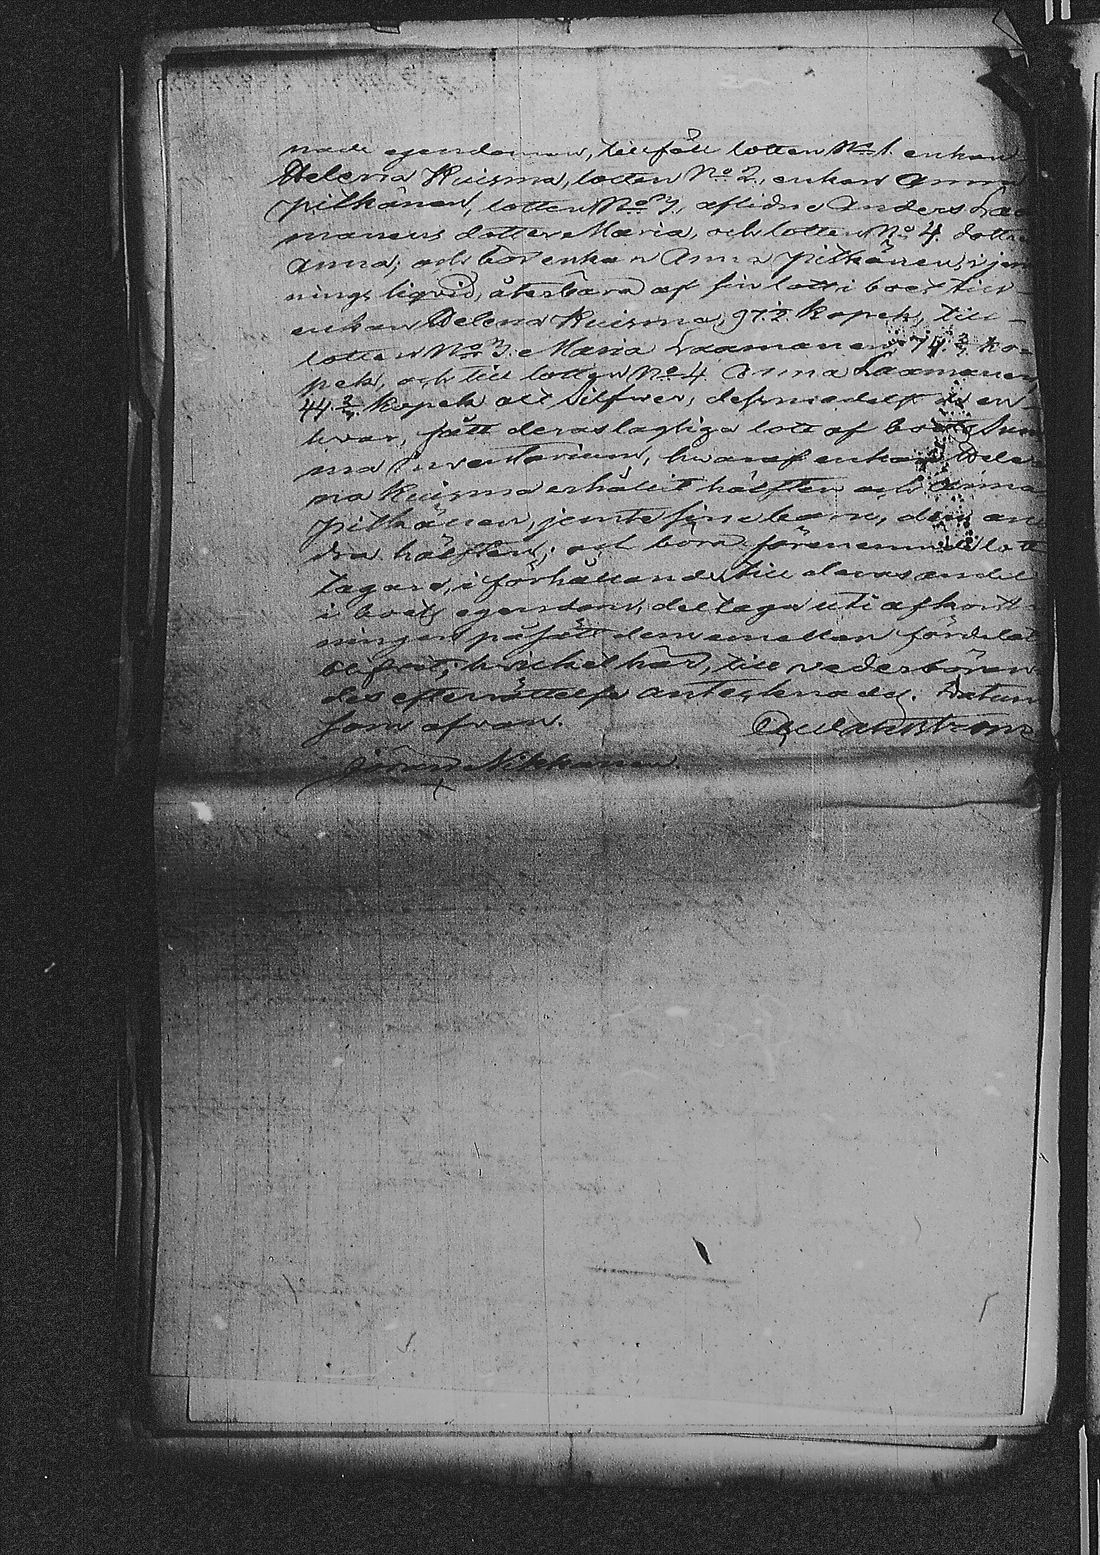 nade egendomen, tillföll lotten No 1. enkan
Helena Kuisma, lotten No 2, enkan Anna
Pitkänen, lotten No 3, aflidne Anders Laa
manens dotter Maria, och lotten No 4. dottren
Anna; och bör enkan Anna Pitkänen, i jem
nings liqvid, återbära af sin lott i boet till
enkan Helena Kuisma, 97½ kopek, till
lotten No 3. Maria Laamanen 74¾ ko
pek, och till lotten No 4 Anna Laamanen,
44¾ kopek allt Silfwer, dessmedelst de en
hvar, fått deras lagliga lott af boets Sum
ma Inventarium, hwaraf enkan Hele
na Kuisma erhållit hälften och Anna
Pitkänen, jemte sine barn, den an
dra hälften; och böra förenemnde lott
tagare, i förhållande till deras andel
i boets egendom, deltaga uti afkort
ningen på sätt dem emellan fördelat
blifvit; hvilket här, till vederböran
des efterrättelse antecknades. Datum
som ofvan.
Nikkanen